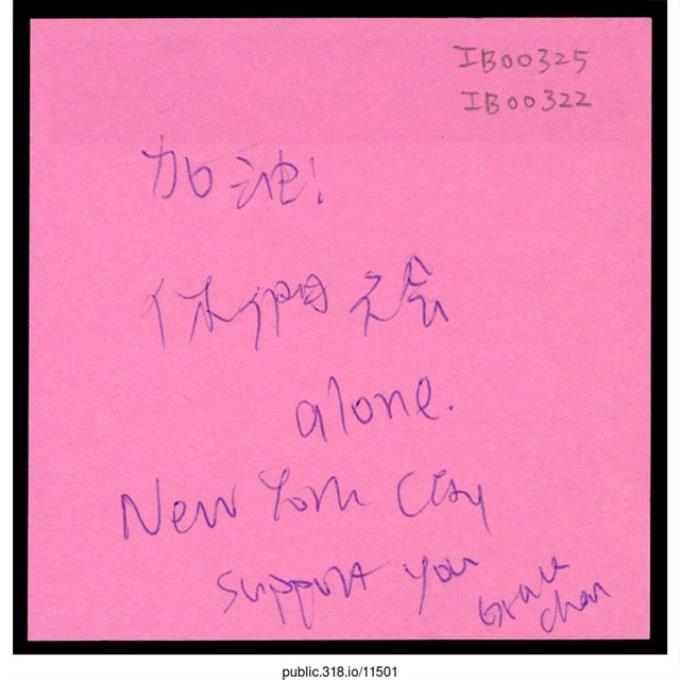 IB00325
IB00322
加油!
你們不會
alone.
New York City
support you
Grace
Chan
public.318.io/11501